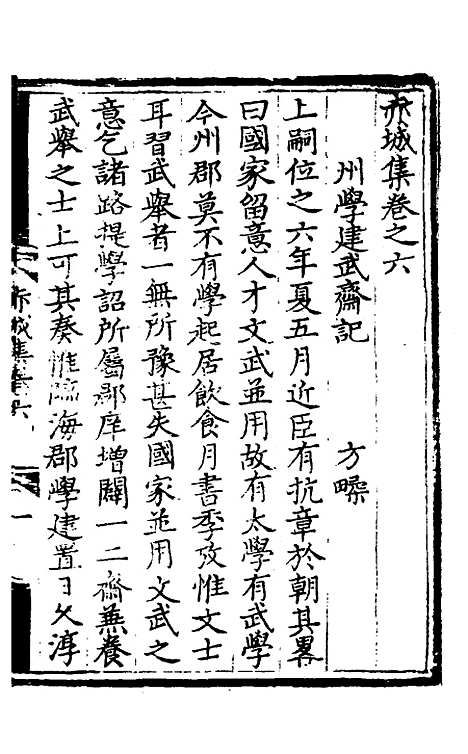 赤城集卷之六
州學建武齋記 方疇
上嗣位之六年夏五月近臣有抗章於朝其畧
曰國家留意人才文武並用故有太學有武學
今州郡莫不有學起居飲食月書季攷惟文士
耳習武舉者一無所豫甚失國家並用文武之
意乞諸路提學詔所屬郡庠增闢一二齋兼養
武舉之士上可其奏惟臨海郡學建置日久淳
赤城集卷六
一